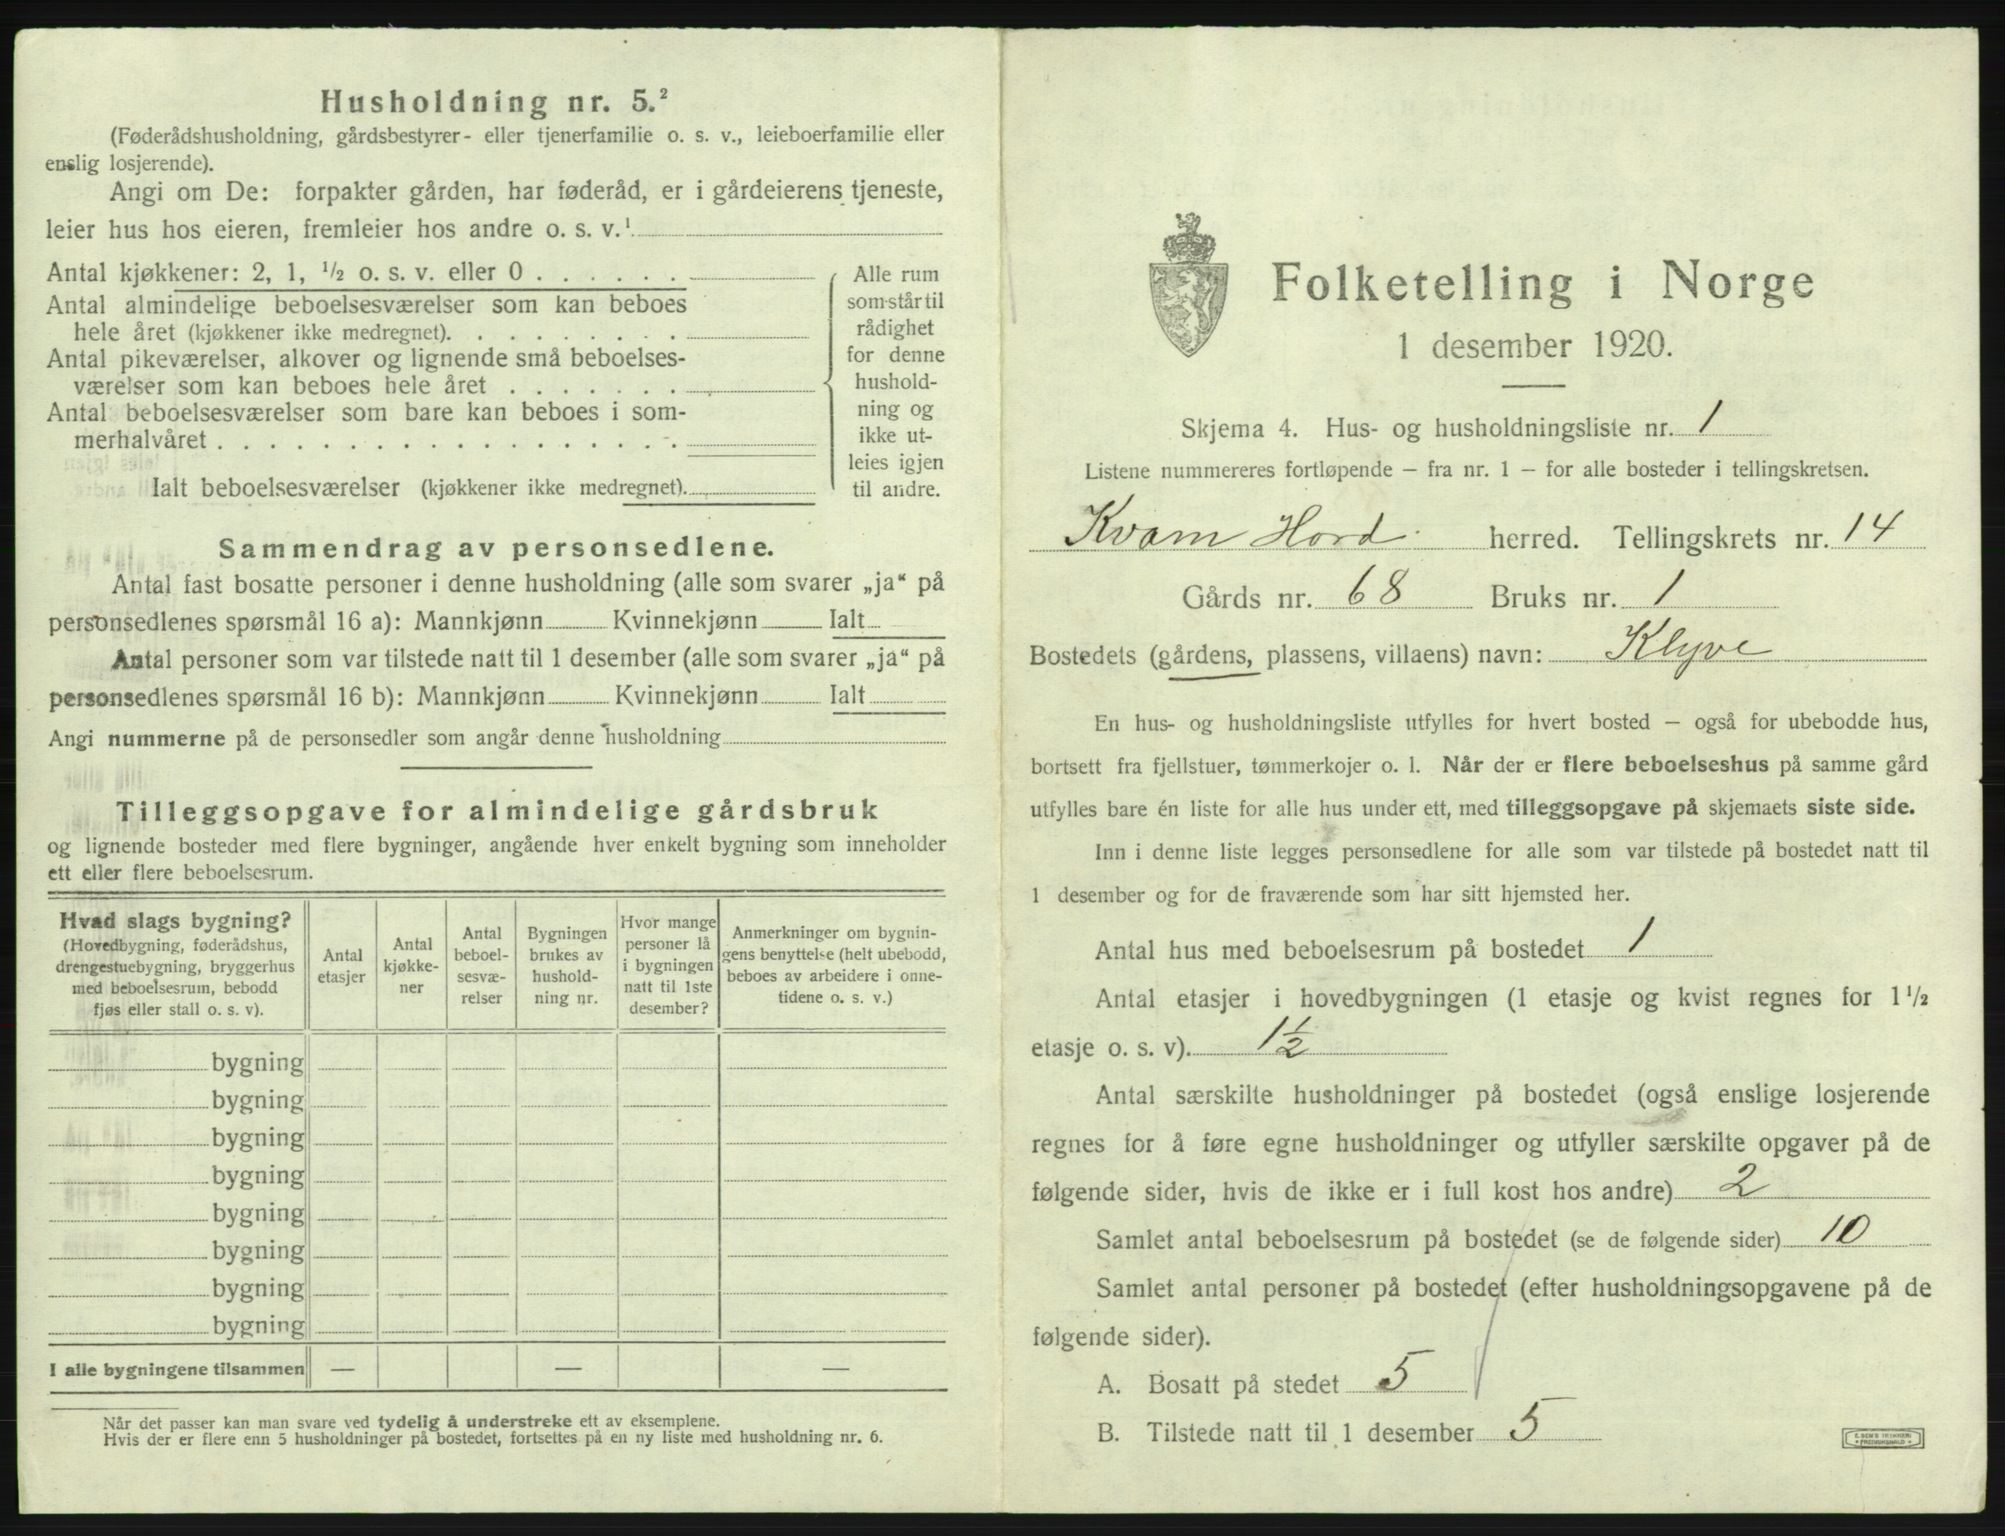 Husholdning nr. 5.²
(Føderådshusholdning, gårdsbestyrer- eller tjenerfamilie o. s. v., leieboerfamilie eller
enslig losjerende).
Angi om De: forpakter gården, har føderåd, er i gårdeierens tjeneste,
leier hus hos eieren, fremleier hos andre o. s. v.¹
Antal kjøkkener: 2, 1, ¹/₂ o. s. v. eller 0 . . . . . .
Antal almindelige beboelsesværelser som kan beboes
hele året (kjøkkener ikke medregnet). . . . . . . . .
Antal pikeværelser, alkover og lignende små beboelses-
værelser som kan beboes hele året . . . . . . .
Antal beboelsesværelser som bare kan beboes i som-
merhalvåret . . . . . . . . . . . . . . . . . .
Ialt beboelsesværelser (kjøkkener ikke medregnet).
Alle rum
som står til
rådighet
for denne
hushold-
ning og
ikke ut-
leies igjen
til andre.
Sammendrag av personsedlene.
Antal fast bosatte personer i denne husholdning (alle som svarer „ja“ på
personsedlenes spørsmål 16 a): Mannkjønn Kvinnekjønn Ialt
Antal personer som var tilstede natt til 1 desember (alle som svarer „ja“ på
personsedlenes spørsmål 16 b): Mannkjønn Kvinnekjønn Ialt
Angi nummerne på de personsedler som angår denne husholdning
Tilleggsopgave for almindelige gårdsbruk
og lignende bosteder med flere bygninger, angående hver enkelt bygning som inneholder
ett eller flere beboelsesrum.
Hvad slags bygning?
(Hovedbygning, føderådshus,
drengestuebygning, bryggerhus
med beboelsesrum, bebodd
fjøs eller stall o. s. v).
Antal
etasjer
Antal
kjøkke-
ner
Antal
beboel-
sesvæ-
relser
Bygningen
brukes av
hushold-
ning nr.
Hvor mange
personer lå
i bygningen
natt til 1ste
desember?
Anmerkninger om bygnin-
gens benyttelse (helt ubebodd,
beboes av arbeidere i onne-
tidene o. s. v.)
bygning
bygning
bygning
bygning
bygning
bygning
bygning
bygning
I alle bygningene tilsammen — — —
Når det passer kan man svare ved tydelig å understreke ett av eksemplene.
Hvis der er flere enn 5 husholdninger på bostedet, fortsettes på en ny liste med husholdning nr. 6.
Folketelling i Norge
1 desember 1920.
Skjema 4. Hus- og husholdningsliste nr. 1
Listene nummereres fortløpende – fra nr. 1 – for alle bosteder i tellingskretsen.
Kvam Hord. herred. Tellingskrets nr. 14
Gårds nr. 68 Bruks nr. 1
Bostedets (gårdens, plassens, villaens) navn: Klyve
En hus- og husholdningsliste utfylles for hvert bosted – også for ubebodde hus,
bortsett fra fjellstuer, tømmerkojer o. l. Når der er flere beboelseshus på samme gård
utfylles bare én liste for alle hus under ett, med tilleggsopgave på skjemaets siste side.
Inn i denne liste legges personsedlene for alle som var tilstede på bostedet natt til
1 desember og for de fraværende som har sitt hjemsted her.
Antal hus med beboelsesrum på bostedet 1
Antal etasjer i hovedbygningen (1 etasje og kvist regnes for 1 ¹/₂
etasje o. s. v). 1½
Antal særskilte husholdninger på bostedet (også enslige losjerende
regnes for å føre egne husholdninger og utfyller særskilte opgaver på de
følgende sider, hvis de ikke er i full kost hos andre) 2
Samlet antal beboelsesrum på bostedet (se de følgende sider) 10
Samlet antal personer på bostedet (efter husholdningsopgavene på de
følgende sider).
A. Bosatt på stedet 5
B. Tilstede natt til 1 desember 5